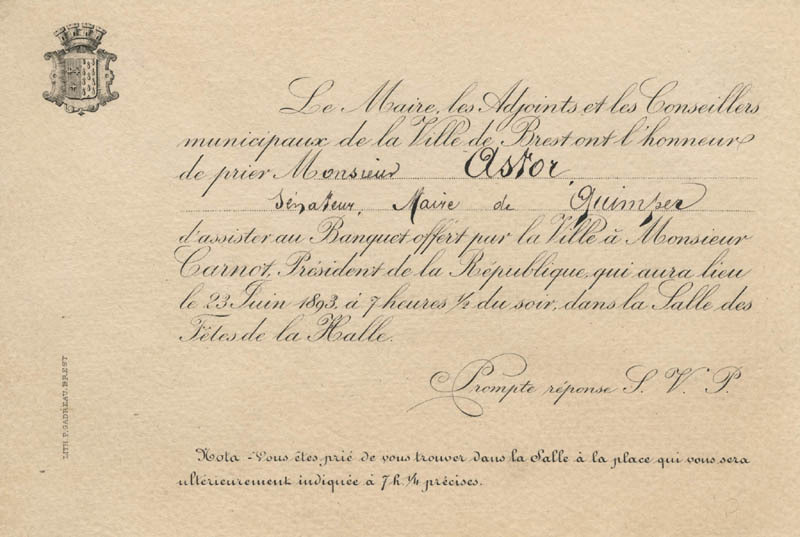 Le Maire, les Adjoints et les Conseillers
municipaux de la Ville de Brest ont l'honneur
de prier Monsieur Astor,
Sénateur, Maire de Quimper
d'assister au Banquet offert par la Ville à Monsieur
Carnot, Président de la République, qui aura lieu
le 23 Juin 1893, à 7 heures 1/2 du soir, dans la Salle des
Fêtes de la Halle.
Prompte réponse S. V. P.
Nota - Vous êtes prié de vous trouver dans la Salle à la place qui vous sera
ultérieurement indiquée à 7 h. 1/4 précises.
LITH. P. GADREAU, BREST